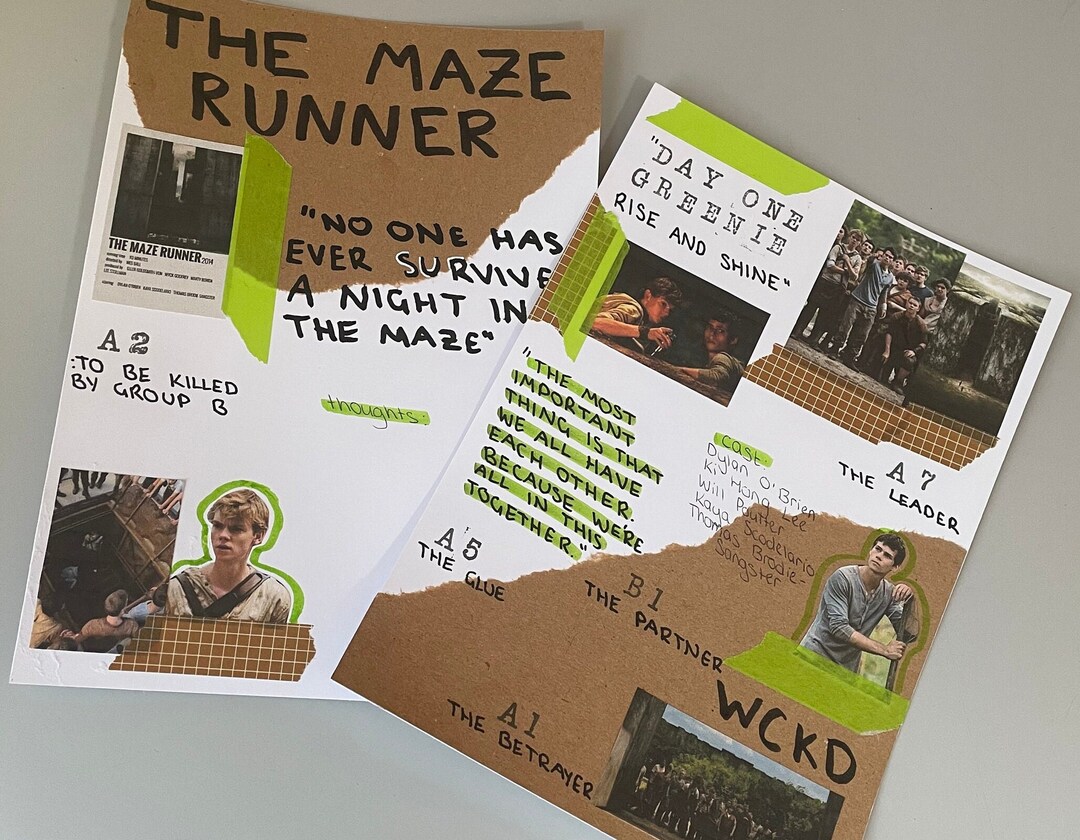 THE MAZE
RUNNER
THE MAZE RUNNER 2014
"NO ONE HAS
EVER SURVIVE
A NIGHT IN
THE MAZE"
A2
:TO BE KILLED
BY GROUP B
thoughts:
"DAY ONE
GREENIE
RISE AND SHINE"
"THE MOST
IMPORTANT
THING IS THAT
WE ALL HAVE
EACH OTHER.
BECAUSE WE'RE
ALL IN THIS
TOGETHER."
cast:
Dylan O'Brien
Ki Hong Lee
Will Poulter
Kaya Scodelario
Thomas Brodie-
Sangster
A7
THE LEADER
A5
THE GLUE
B1
THE PARTNER
WCKD
A1
THE BETRAYER